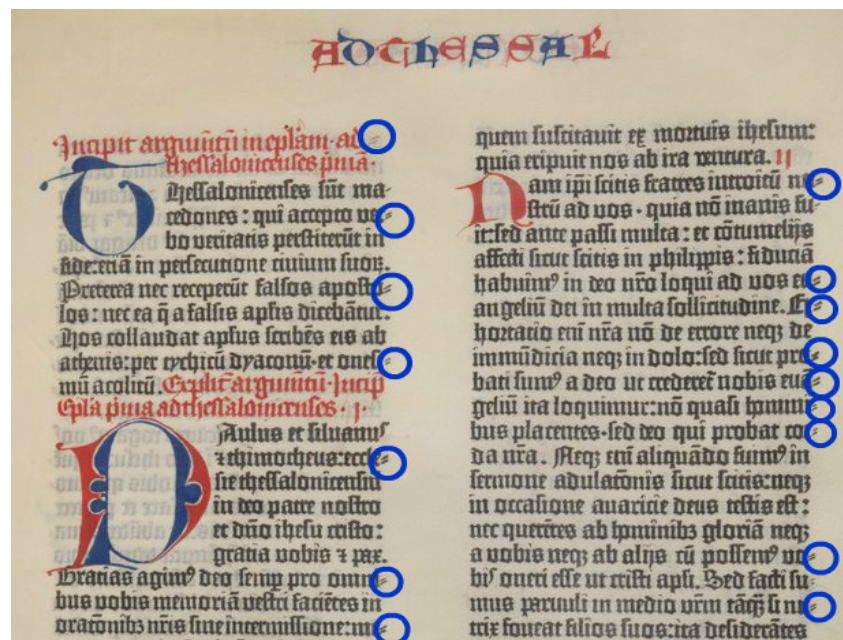 AD THESSAL
Incipit argumētū in eplam ad⸗
thessalonicenses primā·
Thessalonicenses sūt ma⸗
cedones : qui accepto ve⸗
bo veritatis perstiterūt in
fide: etiā in persecutione civium suorꝫ.
Preterea nec receperūt falsos aposto⸗
los : nec ea q̄ a falsis aptis dicebātur.
Hos collaudat aptus scribēs eis ab
athenis: per tychicū dyaconū· et ones⸗
mū acolitū. Explicit argumētū· Incip
Epla prima ad thessalonicenses · i·
Paulus et silvanus
⁊ thimotheus: eccle⸗
sie thessalonicensiū
in deo patre nostro
et dn̄o ihesu cristo :
gratia vobis ⁊ pax.
Gratias agimꝰ deo semp pro omni⸗
bus vobis memoriā vestri faciētes in
orationibꝫ nr̄is sine intermissione: me⸗
quem suscitavit ex mortuis ihesum:
quia eripuit nos ab ira ventura. II
Nam ip̄i scitis fratres introitū no⸗
strū ad vos · quia nō inanis fu⸗
it: sed ante passi multa : et cōtumelijs
affecti sicut scitis in philippis : fiduciā
habuimꝰ in deo nr̄o loqui ad vos eu⸗
angeliū dei in multa sollicitudine. Ex⸗
hortacio eni nr̄a nō de errore neqꝫ de
immūdicia neqꝫ in dolo: sed sicut pro⸗
bati sumꝰ a deo ut crederet̄ nobis euā⸗
geliū ita loquimur: nō quasi homini⸗
bus placentes· sed deo qui probat cor⸗
da nr̄a. Neqꝫ eni aliquādo fuimꝰ in
sermone adulationis sicut scitis: neqꝫ
in occasione avaricie deus testis est :
nec querētes ab hominibꝫ gloriā neqꝫ
a vobis neqꝫ ab alijs cū possemꝰ vo⸗
bis oneri esse ut cristi apli. Sed facti su⸗
mus parvuli in medio vrm̄ tāqꝫ si nu⸗
trix foveat filios suos: ita desiderātes